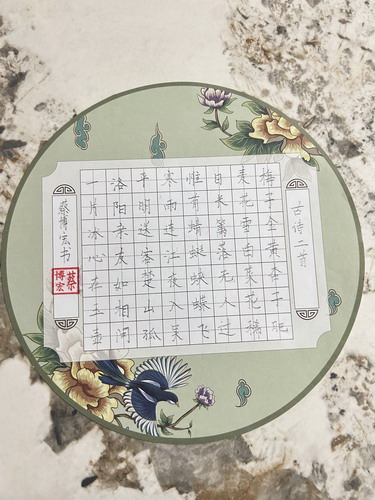 古诗二首
梅子金黄杏子肥
麦花雪白菜花稀
日长篱落无人过
惟有蜻蜓蛱蝶飞
寒雨连江夜入吴
平明送客楚山孤
洛阳亲友如相问
一片冰心在玉壶
蔡博宏书
蔡博宏